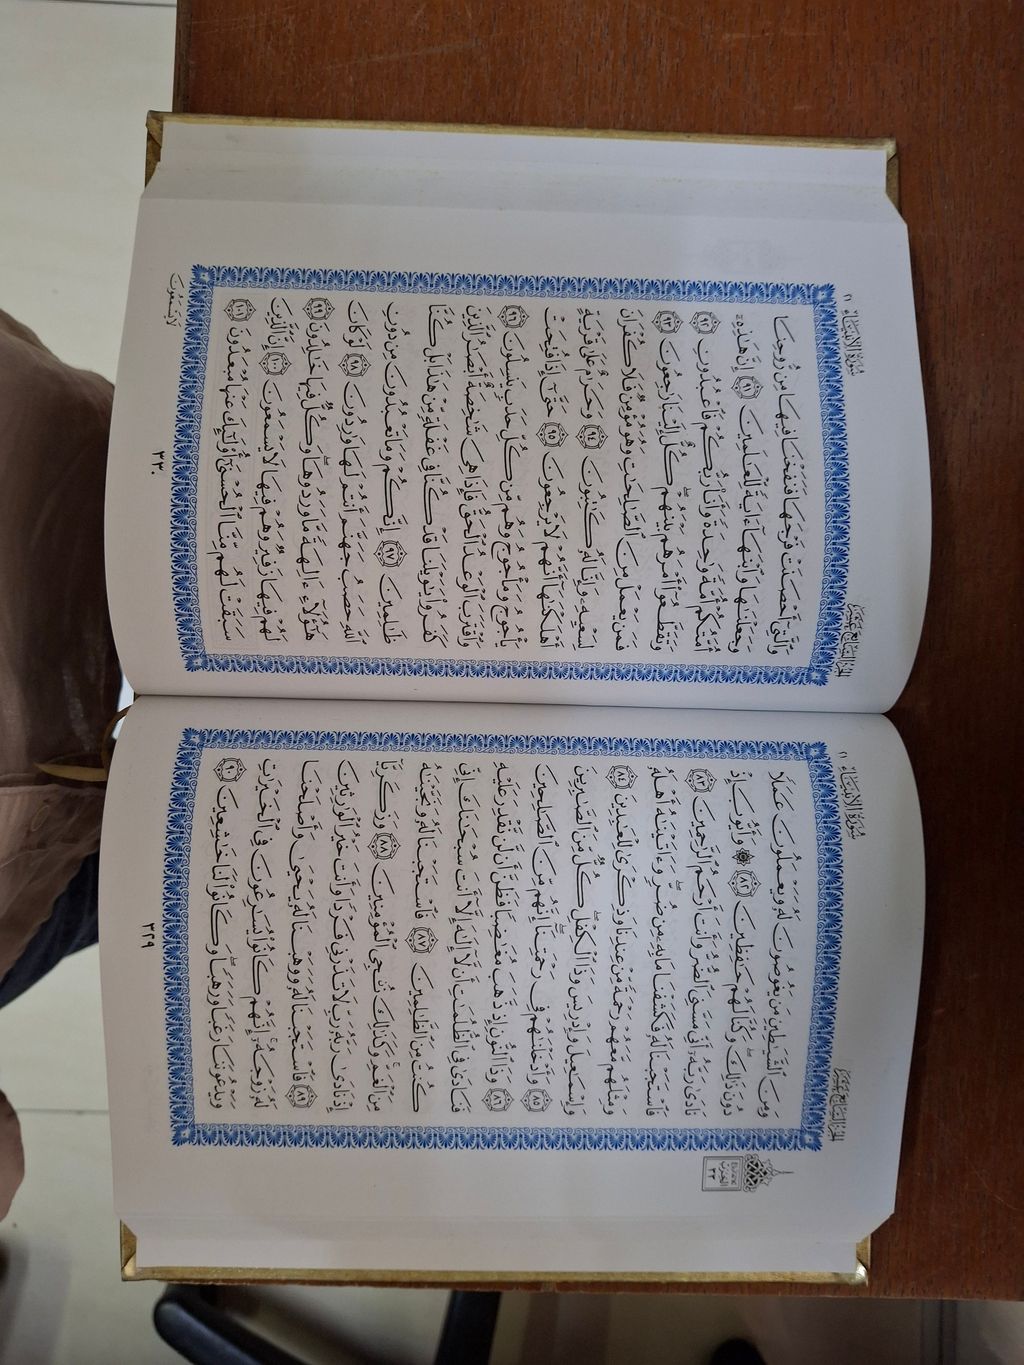 سُورَةُ الأَنبِيَاءِ ٢١
الجُزْءُ السَّابِعَ عَشَرَ
وَمِنَ ٱلشَّيَٰطِينِ مَن يَغُوصُونَ لَهُۥ وَيَعْمَلُونَ عَمَلًا
دُونَ ذَٰلِكَ ۖ وَكُنَّا لَهُمْ حَٰفِظِينَ ٨٢ ۞ وَأَيُّوبَ إِذْ
نَادَىٰ رَبَّهُۥٓ أَنِّى مَسَّنِىَ ٱلضُّرُّ وَأَنتَ أَرْحَمُ ٱلرَّٰحِمِينَ ٨٣
فَٱسْتَجَبْنَا لَهُۥ فَكَشَفْنَا مَا بِهِۦ مِن ضُرٍّ ۖ وَءَاتَيْنَٰهُ أَهْلَهُۥ
وَمِثْلَهُم مَّعَهُمْ رَحْمَةً مِّنْ عِندِنَا وَذِكْرَىٰ لِلْعَٰبِدِينَ ٨٤
وَإِسْمَٰعِيلَ وَإِدْرِيسَ وَذَا ٱلْكِفْلِ ۖ كُلٌّ مِّنَ ٱلصَّٰبِرِينَ
٨٥ وَأَدْخَلْنَٰهُمْ فِى رَحْمَتِنَآ ۖ إِنَّهُم مِّنَ ٱلصَّٰلِحِينَ
٨٦ وَذَا ٱلنُّونِ إِذ ذَّهَبَ مُغَٰضِبًا فَظَنَّ أَن لَّن نَّقْدِرَ عَلَيْهِ
فَنَادَىٰ فِى ٱلظُّلُمَٰتِ أَن لَّآ إِلَٰهَ إِلَّآ أَنتَ سُبْحَٰنَكَ إِنِّى
كُنتُ مِنَ ٱلظَّٰلِمِينَ ٨٧ فَٱسْتَجَبْنَا لَهُۥ وَنَجَّيْنَٰهُ
مِنَ ٱلْغَمِّ ۚ وَكَذَٰلِكَ نُۨجِى ٱلْمُؤْمِنِينَ ٨٨ وَزَكَرِيَّآ
إِذْ نَادَىٰ رَبَّهُۥ رَبِّ لَا تَذَرْنِى فَرْدًا وَأَنتَ خَيْرُ ٱلْوَٰرِثِينَ
٨٩ فَٱسْتَجَبْنَا لَهُۥ وَوَهَبْنَا لَهُۥ يَحْيَىٰ وَأَصْلَحْنَا
لَهُۥ زَوْجَهُۥٓ ۚ إِنَّهُمْ كَانُوا۟ يُسَٰرِعُونَ فِى ٱلْخَيْرَٰتِ
وَيَدْعُونَنَا رَغَبًا وَرَهَبًا ۖ وَكَانُوا۟ لَنَا خَٰشِعِينَ ٩٠
الحزب
٣٣
٣٢٩
سُورَةُ الأَنبِيَاءِ ٢١
الجُزْءُ السَّابِعَ عَشَرَ
وَٱلَّتِىٓ أَحْصَنَتْ فَرْجَهَا فَنَفَخْنَا فِيهَا مِن رُّوحِنَا
وَجَعَلْنَٰهَا وَٱبْنَهَآ ءَايَةً لِّلْعَٰلَمِينَ ٩١ إِنَّ هَٰذِهِۦٓ
أُمَّتُكُمْ أُمَّةً وَٰحِدَةً وَأَنَا۠ رَبُّكُمْ فَٱعْبُدُونِ ٩٢
وَتَقَطَّعُوٓا۟ أَمْرَهُم بَيْنَهُمْ ۖ كُلٌّ إِلَيْنَا رَٰجِعُونَ ٩٣
فَمَن يَعْمَلْ مِنَ ٱلصَّٰلِحَٰتِ وَهُوَ مُؤْمِنٌ فَلَا كُفْرَانَ
لِسَعْيِهِۦ وَإِنَّا لَهُۥ كَٰتِبُونَ ٩٤ وَحَرَٰمٌ عَلَىٰ قَرْيَةٍ
أَهْلَكْنَٰهَآ أَنَّهُمْ لَا يَرْجِعُونَ ٩٥ حَتَّىٰٓ إِذَا فُتِحَتْ
يَأْجُوجُ وَمَأْجُوجُ وَهُم مِّن كُلِّ حَدَبٍ يَنسِلُونَ ٩٦
وَٱقْتَرَبَ ٱلْوَعْدُ ٱلْحَقُّ فَإِذَا هِىَ شَٰخِصَةٌ أَبْصَٰرُ ٱلَّذِينَ
كَفَرُوا۟ يَٰوَيْلَنَا قَدْ كُنَّا فِى غَفْلَةٍ مِّنْ هَٰذَا بَلْ كُنَّا
ظَٰلِمِينَ ٩٧ إِنَّكُمْ وَمَا تَعْبُدُونَ مِن دُونِ
ٱللَّهِ حَصَبُ جَهَنَّمَ أَنتُمْ لَهَا وَٰرِدُونَ ٩٨ لَوْ كَانَ
هَٰٓؤُلَآءِ ءَالِهَةً مَّا وَرَدُوهَا ۖ وَكُلٌّ فِيهَا خَٰلِدُونَ ٩٩
لَهُمْ فِيهَا زَفِيرٌ وَهُمْ فِيهَا لَا يَسْمَعُونَ ١٠٠ إِنَّ ٱلَّذِينَ
سَبَقَتْ لَهُم مِّنَّا ٱلْحُسْنَىٰٓ أُو۟لَٰٓئِكَ عَنْهَا مُبْعَدُونَ ١٠١
لَا يَسْمَعُونَ
٣٣٠